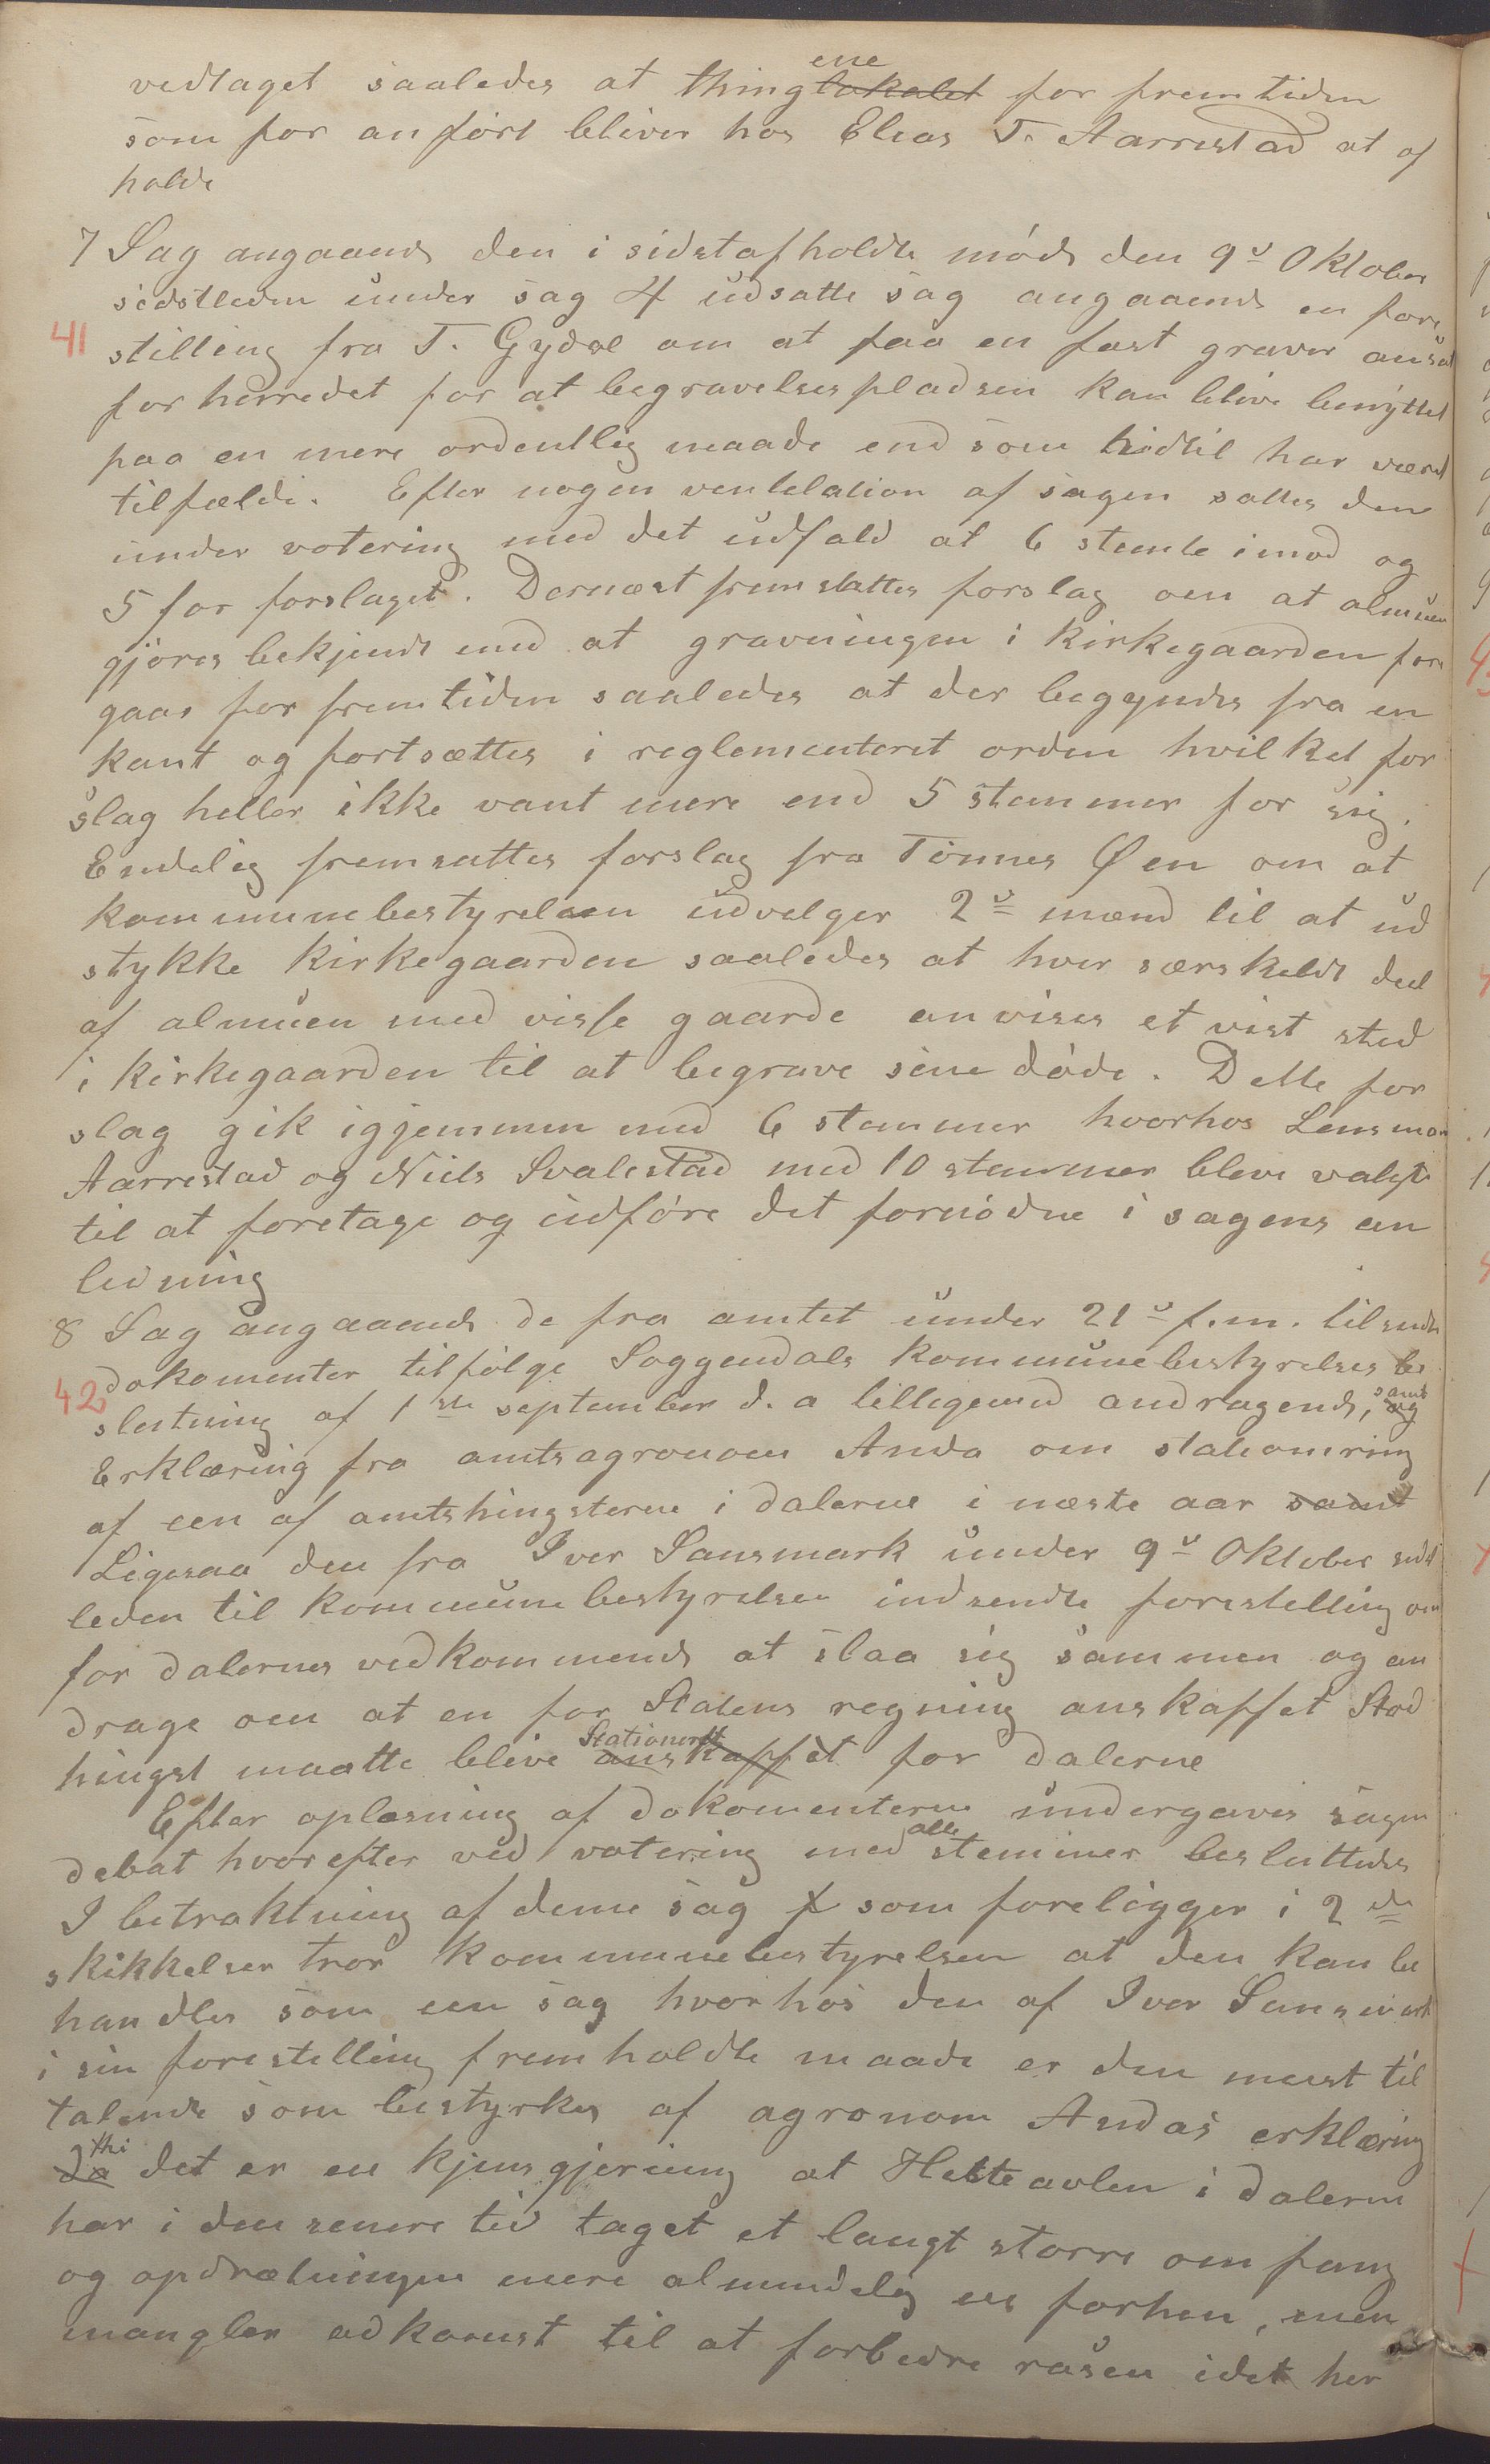 vedtaget saaledes at thinglokalet ene for fremtiden
som for anført bliver hos Elias T. Aarrestad at af
holde
7 Sag angaaende den i sidst afholdte møde den 9de Oktober
sidstleden under sag 4 udsatte sag angaaende en fore
41 stilling fra T. Gydal om at faa en fast graver ansat
for herredet for at begravelsespladsen kan blive benyttet
paa en mere ordentlig maade end som hidtil har været
tilfælde. Efter nogen ventelation af sagen sattes den
under votering med det udfald at 6 stemte imod og
5 for forslaget. Dernæst fremsattes forslag om at almuen
gjøres bekjendt med at gravningen i Kirkegaarden fore
gaar for fremtiden saaledes at der begyndes fra en
kant og fortsættes i reglementeret orden hvilket for
slag heller ikke vant mere end 5 stemmer for sig.
Endelig fremsattes forslag fra Tønnes Øen om at
kommunebestyrelsen udvelger 2de mænd til at ud
stykke Kirkegaarden saaledes at hver særskeldt deel
af almuen med visse gaarde anvises et vist sted
i kirkegaarden til at begrave sine døde. Dette for
slag gik igjemmen med 6 stemmer hvorhos Lensman
Aarrestad og Niels Svalestad med 10 stemmer bleve valgte
til at foretage og udføre det fornødne i sagens an
ledning
8 Sag angaaende de fra amtet under 21de f.m. tilsendte
dokomenter tilfølge Soggendals kommunebestyrelses be
42 slutning af 1ste september d. a tilligemed andragende, og samt
Erklæring fra amtsagronom Anda om stationering
af een af amtshingsterne i dalerne i næste aar samt
Ligesaa den fra Iver Sansmark under 9de Oktober sidst
leden til kommunebestyrelsen indsendte forestelling om
for dalernes vedkommende at slaa sig sammen og an
drage om at en for Statens regning anskaffet Stod
hingst maatte blive anskaffet Stationeret for dalerne
Efter oplæsning af dokomenterne undergaves sagen
debat hvorefter ved votering med alle stemmer besluttedes
I betraktning af denne sag som foreligger i 2de
skikkelser tror kommunebestyrelsen at den kan be
handles som een sag hvorhos den af Iver Sansmark
i sin forestelling fremholdte maade er den meest til
talende som bestyrkes af agronom Andas erklæring
da thi det er en kjensgjerning at Hesteavlen i dalerne
har i den senere tid taget et langt større omfang
og opdrætningen mere almindelig en forhen, men
mangler adkomst til at forbedre rasen idet her